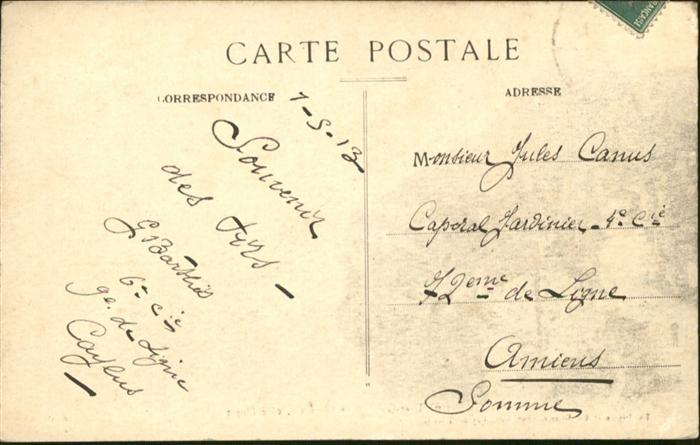 CARTE POSTALE
CORRESPONDANCE
ADRESSE
7-5-13
Souvenir
des tirs -
G Barthès
6e Cie
9e. de Ligne
Caylus
Monsieur Jules Canus
Caporal Jardinier - 4e Cie
72eme de Ligne
Amiens
Somme